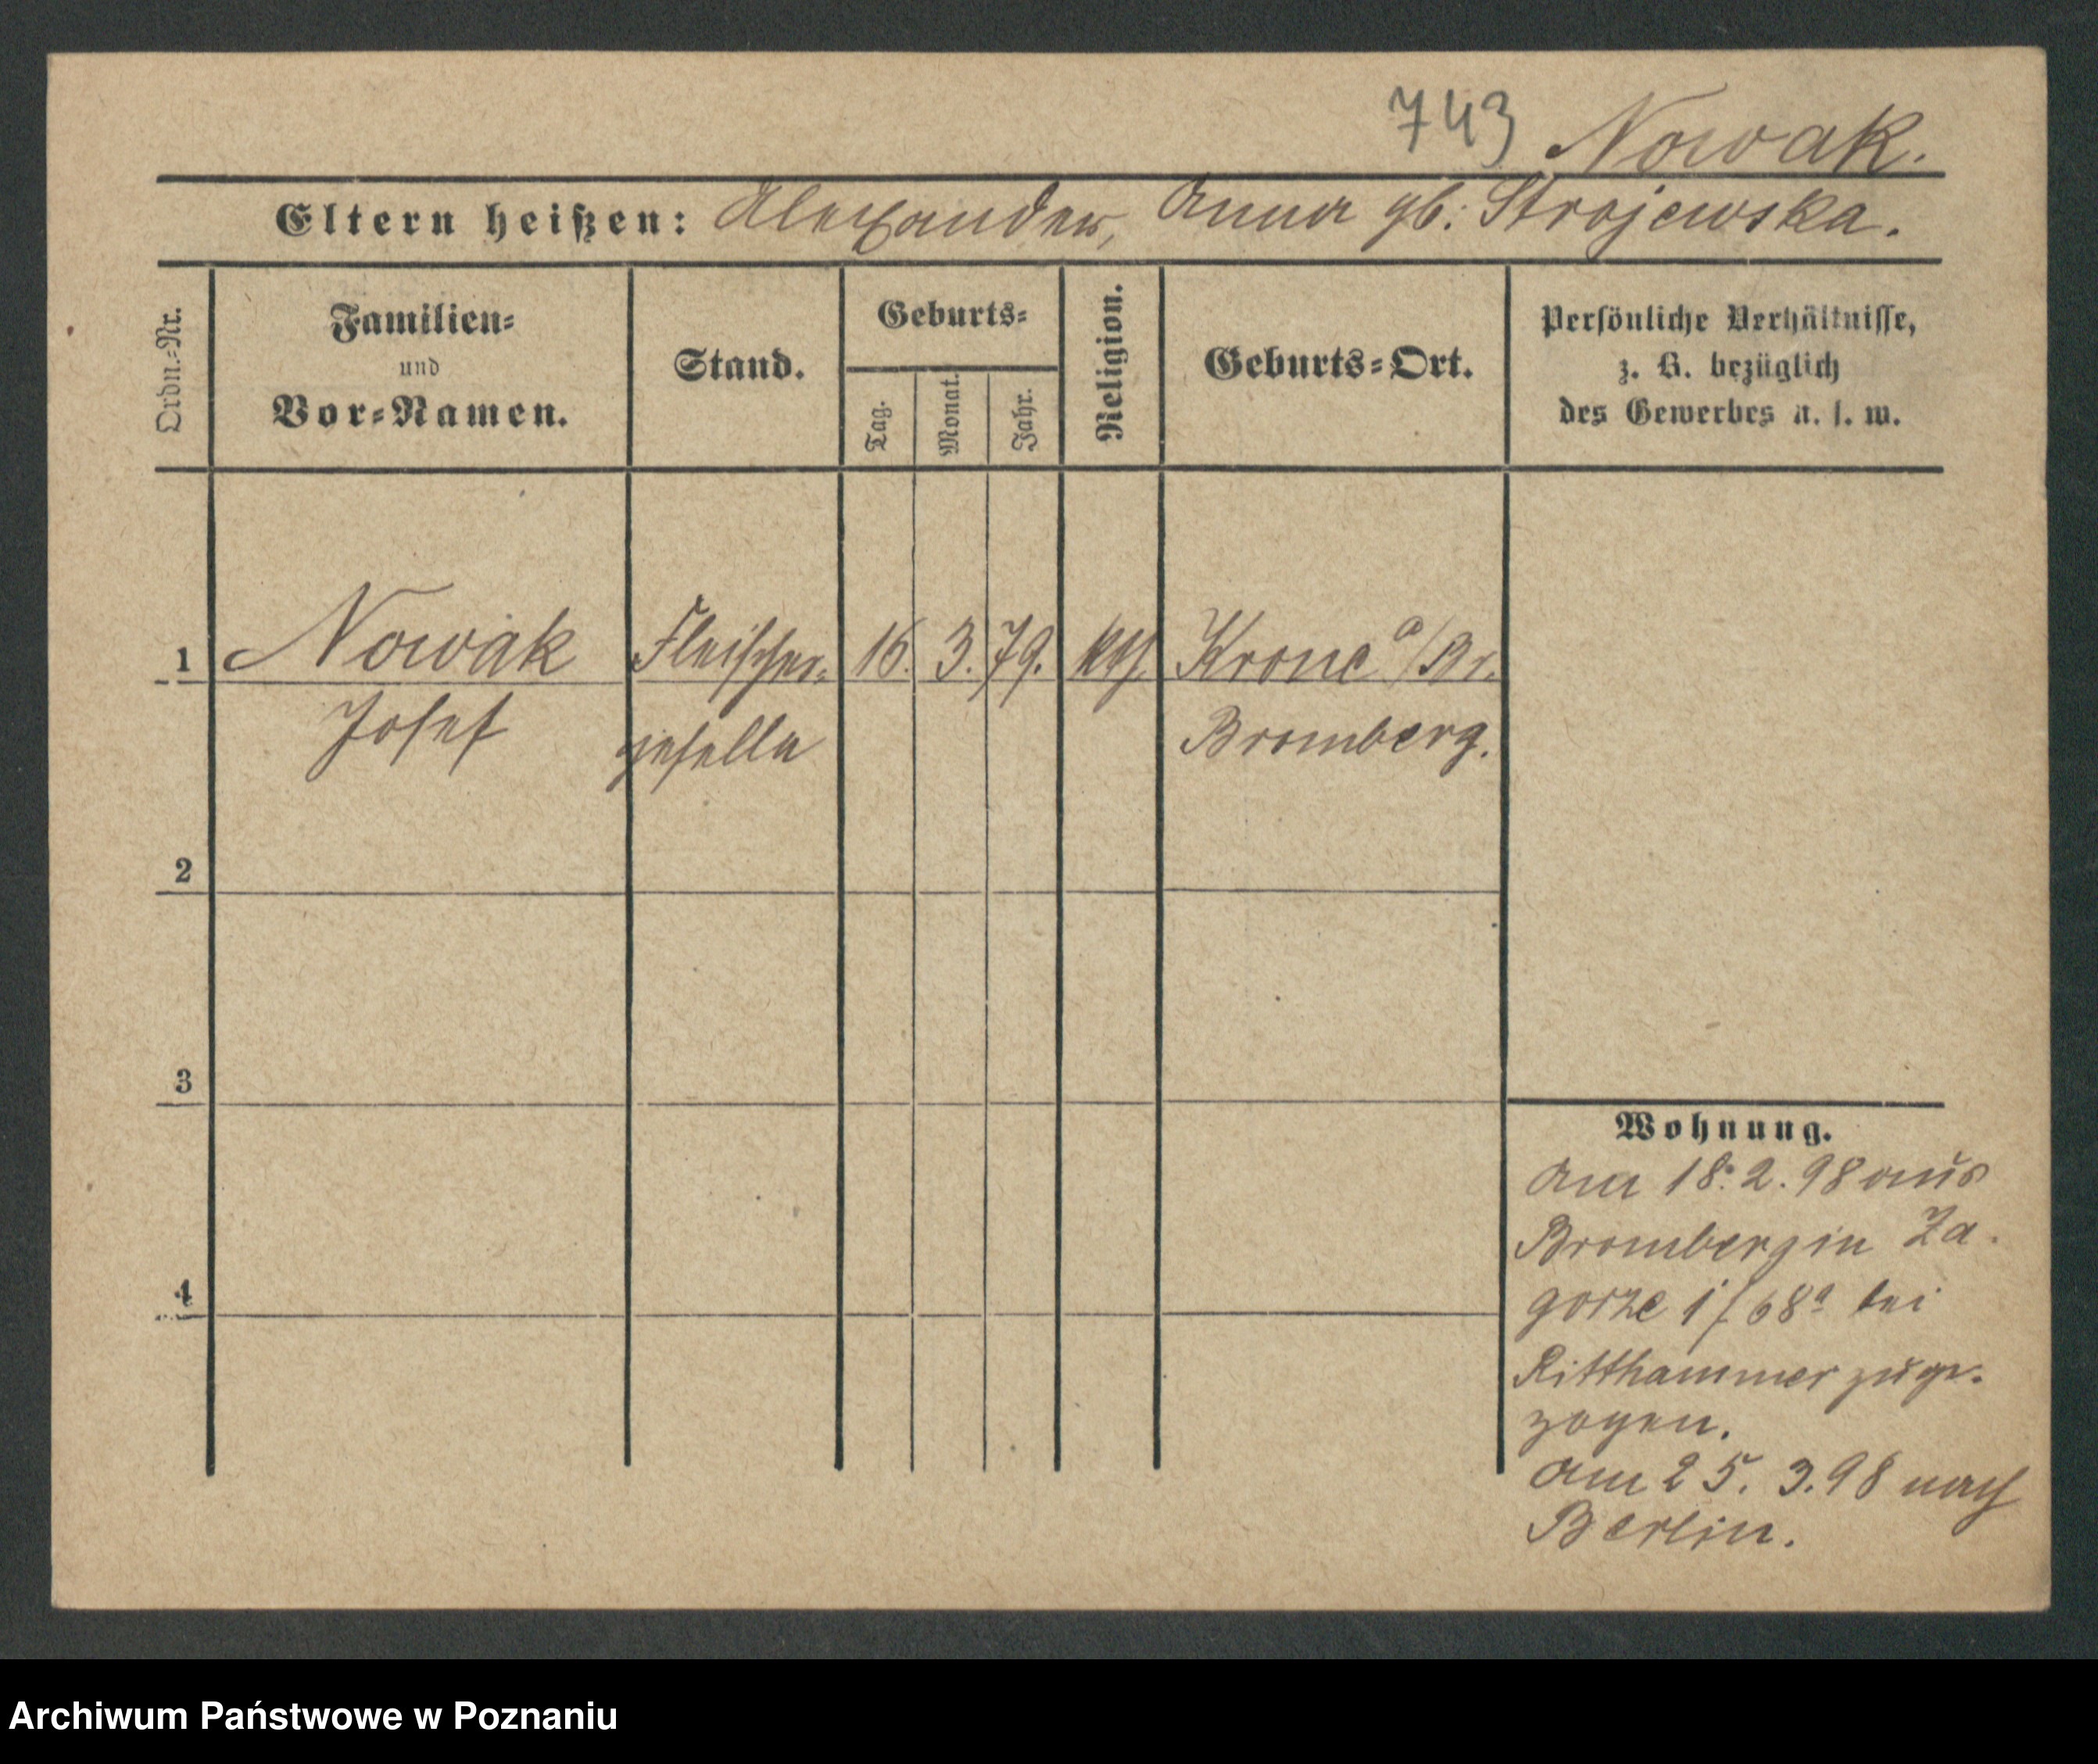 743 Nowak.
Eltern heißen: Alexander, Anna gb: Strojewska.
Ordn.-Nr.
Familien-
und
Vor-Namen.
Stand.
Geburts-
Tag.
Monat.
Jahr.
Religion.
Geburts-Ort.
Persönliche Verhältnisse,
z. B. bezüglich
des Gewerbes u. s. w.
1 Nowak Fleischer- 16. 3. 79. kth. Krone a/Br.
Josef geselle Bromberg.
2
3
4
Wohnung.
Am 18. 2. 98 aus
Bromberg in Za-
gorze 1/68a bei
Ritthammer zuge-
zogen.
Am 25. 3. 98 nach
Berlin.
Archiwum Państwowe w Poznaniu